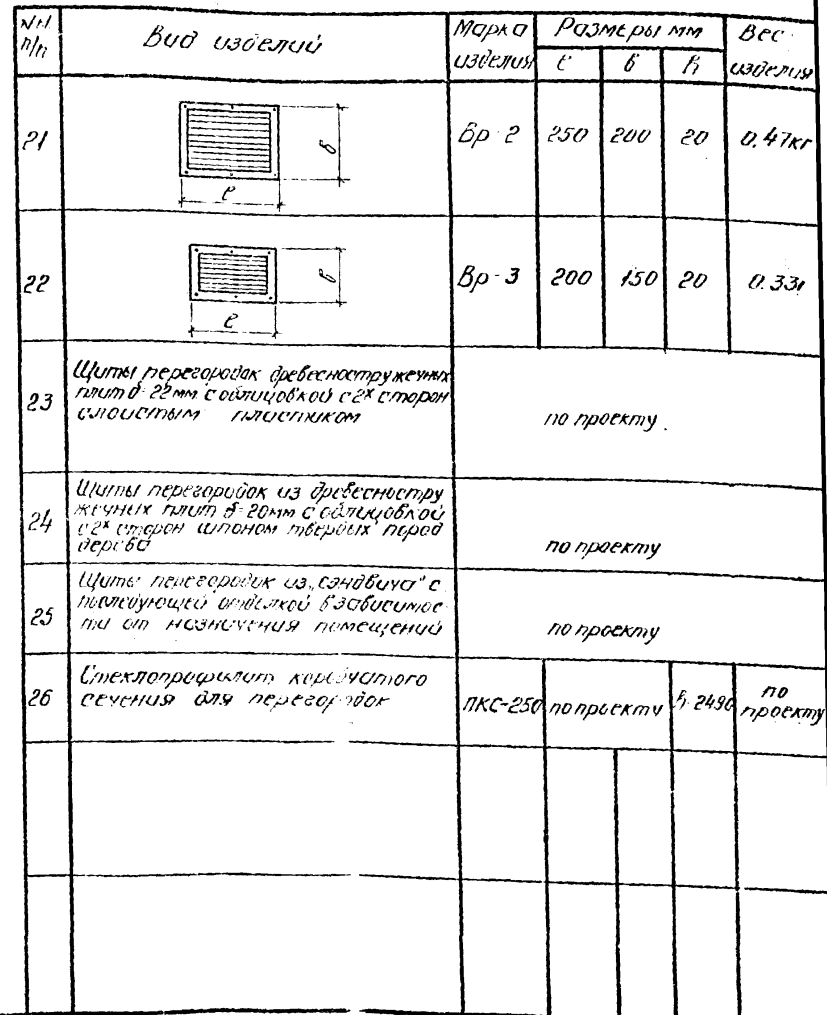 NN Вид изделий Марка Размеры мм Вес
п/п изделия ℓ в h изделия
21 в Вр-2 250 200 20 0.47кг
ℓ
22 в Вр-3 200 150 20 0.33
ℓ
Щиты перегородок древесностружечных
плит δ=22мм с облицовкой с 2х сторон
23 слоистым пластиком по проекту
Щиты перегородок из древесностру
жечных плит δ=20мм с облицовкой
24 с 2х сторон шпоном твердых пород
дерева по проекту
Щиты перегородок из „сэндвича" с
последующей отделкой в зависимос-
25 ти от назначения помещений по проекту
Стеклопрофилит коробчатого
26 сечения для перегородок ПКС-250 по проекту h=2490 по
проекту